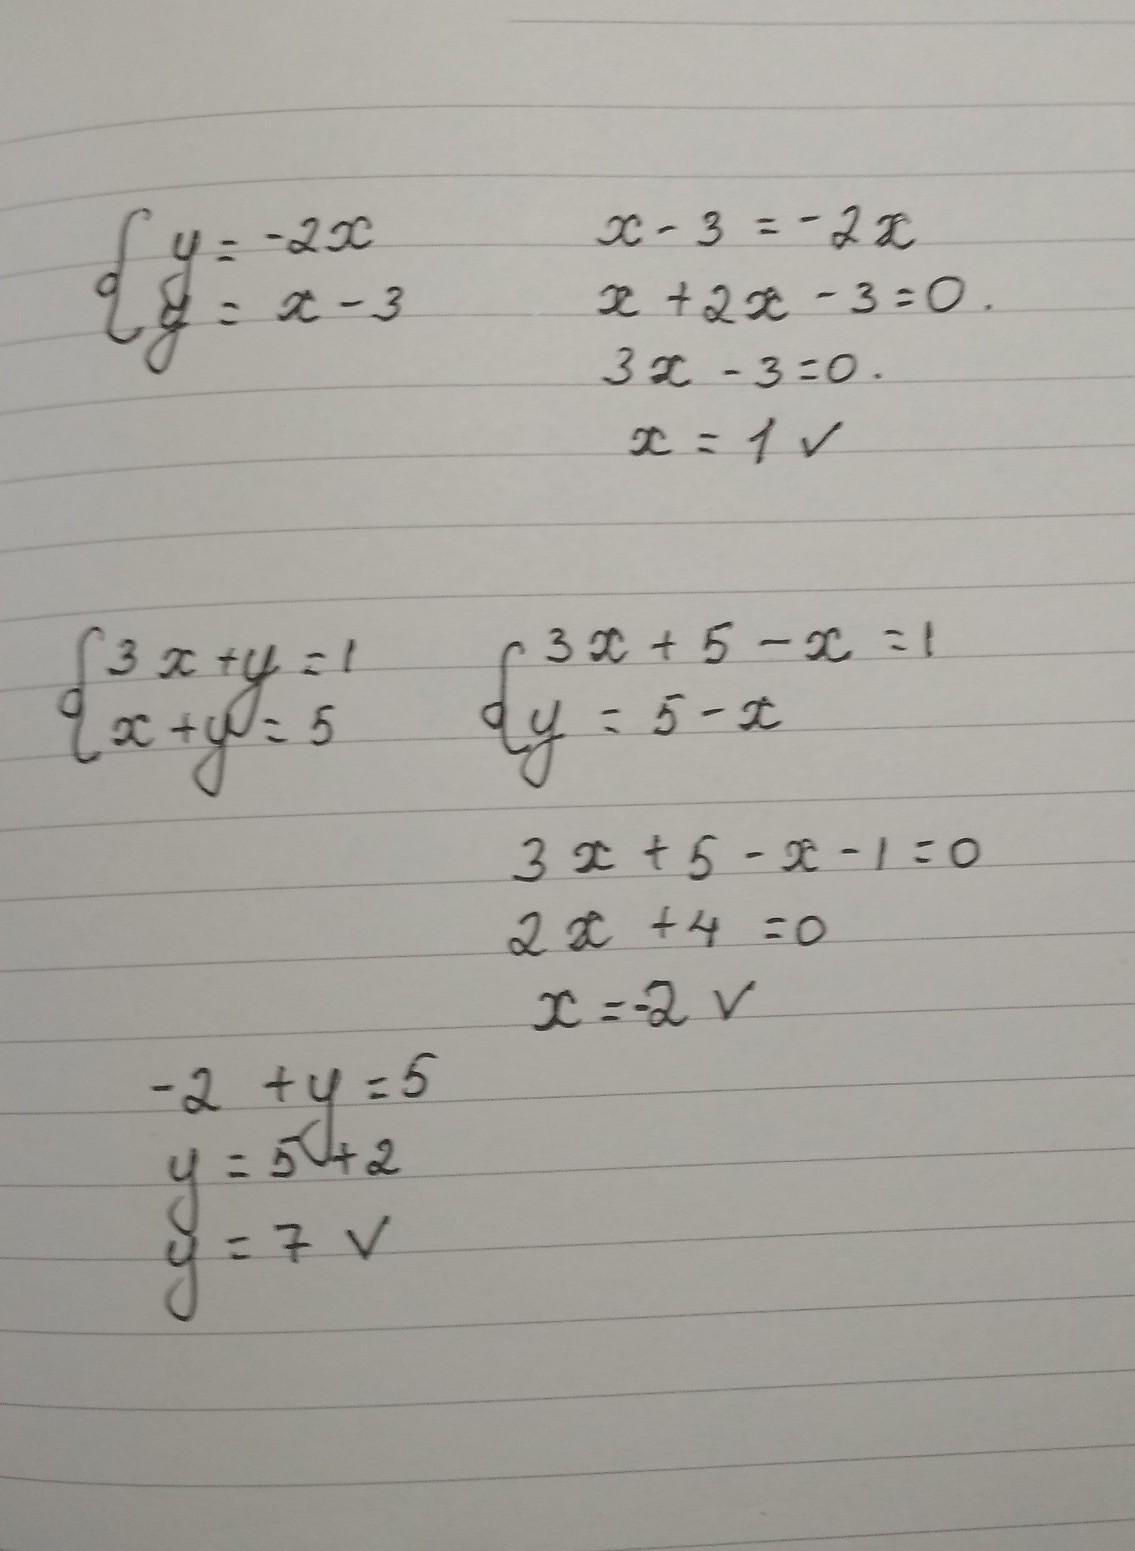 y = -2x
y = x - 3
x - 3 = -2x
x + 2x - 3 = 0.
3x - 3 = 0.
x = 1 ✓
3x + y = 1
x + y = 5
3x + 5 - x = 1
y = 5 - x
3x + 5 - x - 1 = 0
2x + 4 = 0
x = -2 ✓
-2 + y = 5
y = 5 + 2
y = 7 ✓